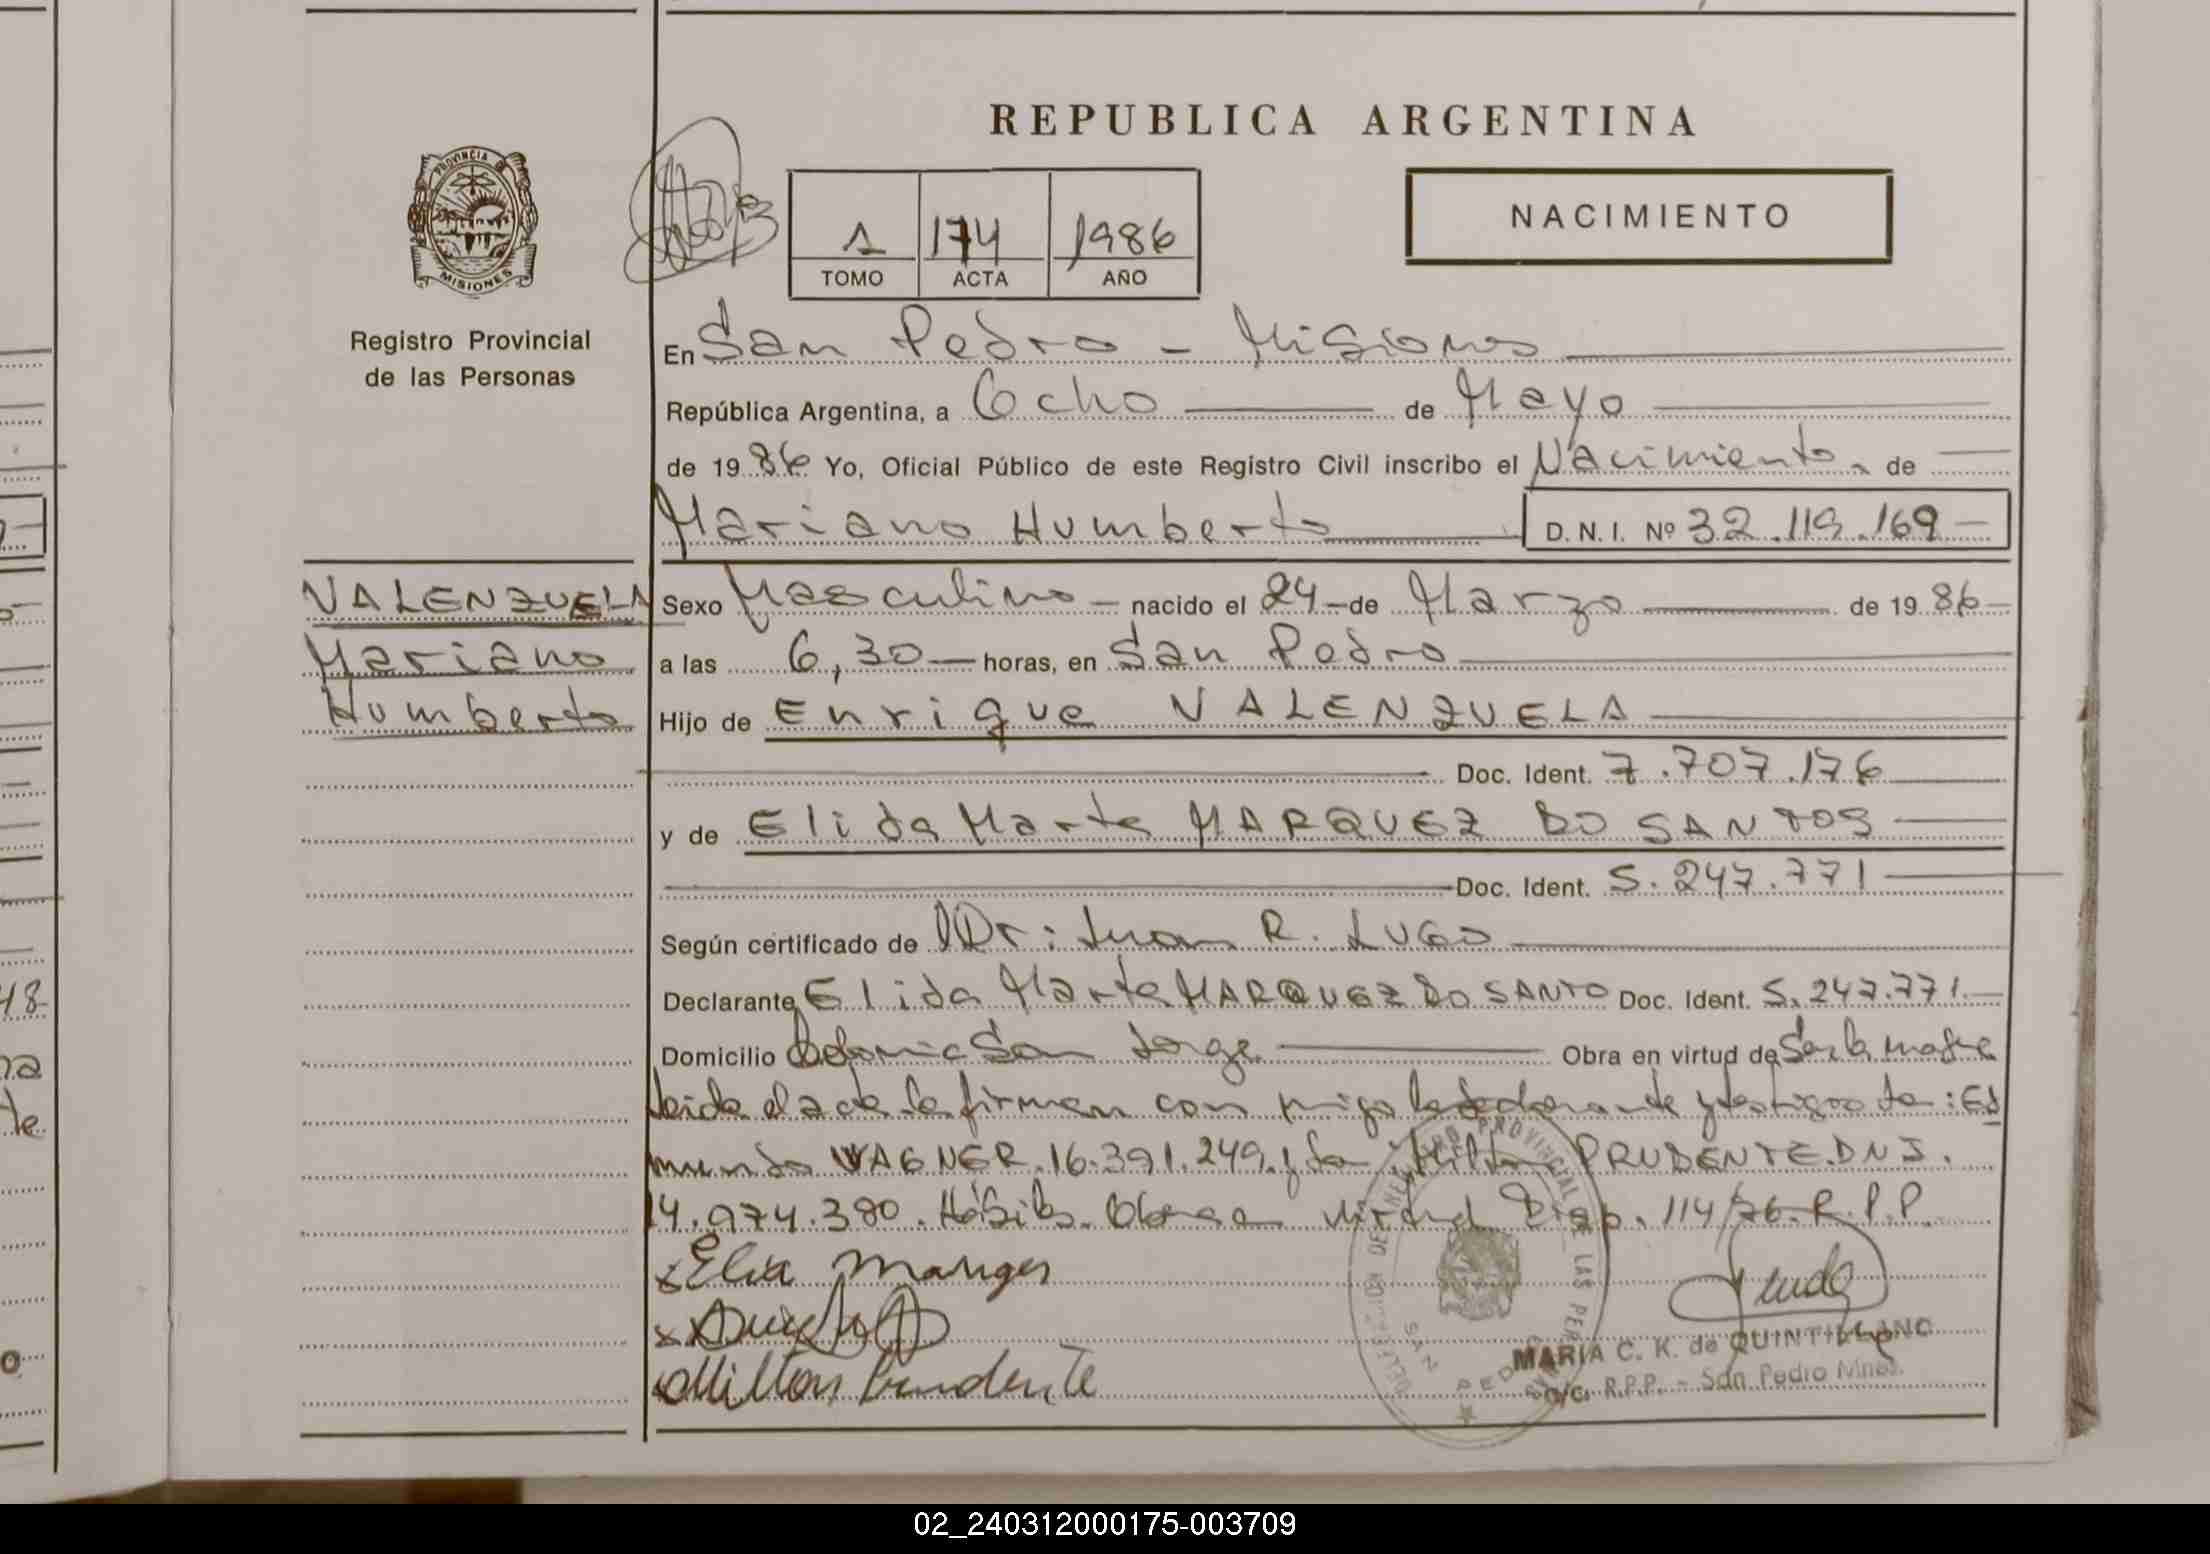 REPUBLICA ARGENTINA
PROVINCIA DE
MISIONES
Registro Provincial
de las Personas
1 174 1986
TOMO ACTA AÑO
NACIMIENTO
En San Pedro - Misiones
República Argentina, a Ocho de Mayo
de 1986 Yo, Oficial Público de este Registro Civil inscribo el Nacimiento de
Mariano Humberto D.N.I. Nº 32.119.169
VALENZUELA
Mariano
Humberto
Sexo Masculino nacido el 24 de Marzo de 1986
a las 6,30 horas, en San Pedro
Hijo de Enrique VALENZUELA
Doc. Ident. 7.707.176
y de Elida Marta MARQUEZ DO SANTOS
Doc. Ident. 5.247.771
Según certificado de Dr: Juan R. LUGO
Declarante Elida Marta MARQUEZ DO SANTO Doc. Ident. 5.247.771
Domicilio Colonia San Jorge Obra en virtud de Ser la madre
Leida el acta la firman con migo la declarante y testigos Dn: Ed
mundo WAGNER.16.391.249.y Dn Milton PRUDENTE.D.N.I.
14.974.380. Hábiles. Obra en virtud Disp. 114/76.R.P.P.
Elia Marques
Milton Prudente
REGISTRO PROVINCIAL DE LAS PERSONAS
SAN PEDRO
MARIA C. K. de QUINTILLANO
O/C. R.P.P. - San Pedro Mnes.
48
na
te
o
02_240312000175-003709